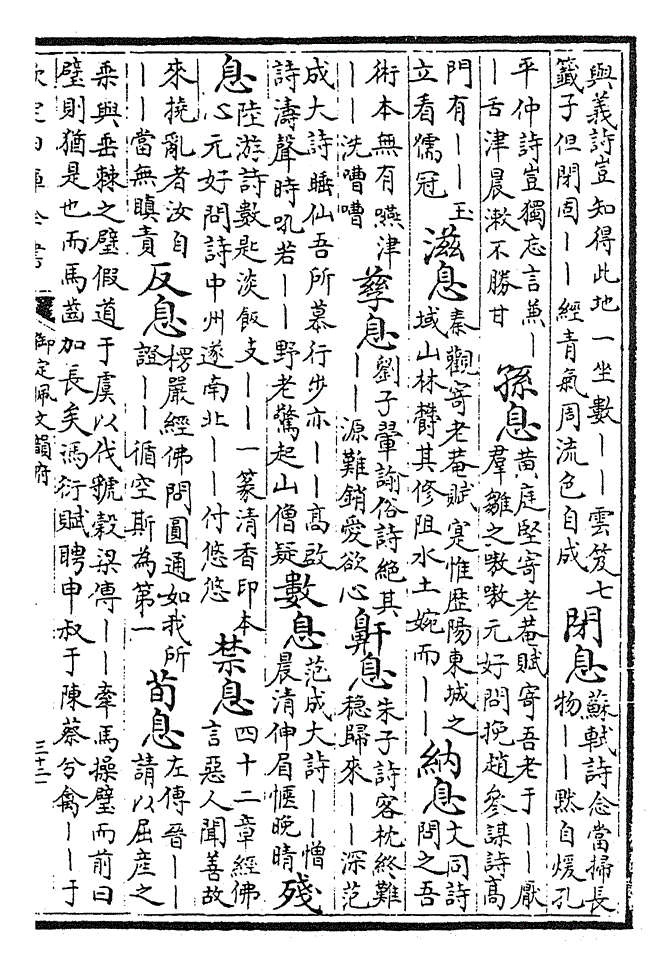 與義詩豈知得此地一坐數丨丨雲笈七
籖子但閉固丨丨經青氣周流色自成
閉息
蘇軾詩念當掃長
物丨丨黙自煖孔
平仲詩豈獨忘言兼丨
丨舌津晨漱不勝甘
孫息
黄庭堅寄老菴賦寄吾老于丨丨厭
羣雛之嗷嗷元好問挽趙參謀詩髙
門有丨丨玉
立看儒冠
滋息
秦觀寄老菴賦寔惟歴陽東城之
域山林欝其修阻水土婉而丨丨
納息
文同詩
問之吾
術本無有嚥津
丨丨洗嘈嘈
孳息
劉子翬諭俗詩絶其
丨丨源難銷愛欲心
鼾息
朱子詩客枕終難
穏歸來丨丨深范
成大詩睡仙吾所慕行步亦丨丨髙啟
詩濤聲時吼若丨丨野老驚起山僧疑
數息
范成大詩丨丨憎
晨清伸眉愜晚晴
殘
息
陸游詩數匙淡飯支丨丨一篆清香印本
心元好問詩中州遂南北丨丨付悠悠
禁息
四十二章經佛
言惡人聞善故
來撓亂者汝自
丨丨當無瞋責
反息
楞嚴經佛問圓通如我所
證丨丨循空斯為第一
荀息
左傳晉丨丨
請以屈産之
乗與垂棘之璧假道于虞以伐虢榖梁傳丨丨牽馬操璧而前曰
璧則猶是也而馬齒加長矣馮衍賦聘申叔于陳蔡兮禽丨丨于
欽定四庫全書
御定佩文韻府
三十二